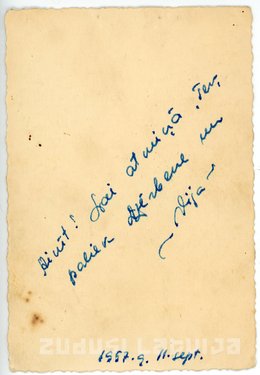 Ainīt! Lai atmiņā Tev
paliek Dzērbene un
~ Vija ~
1957. g. 11. sept.
zudusi Latvija